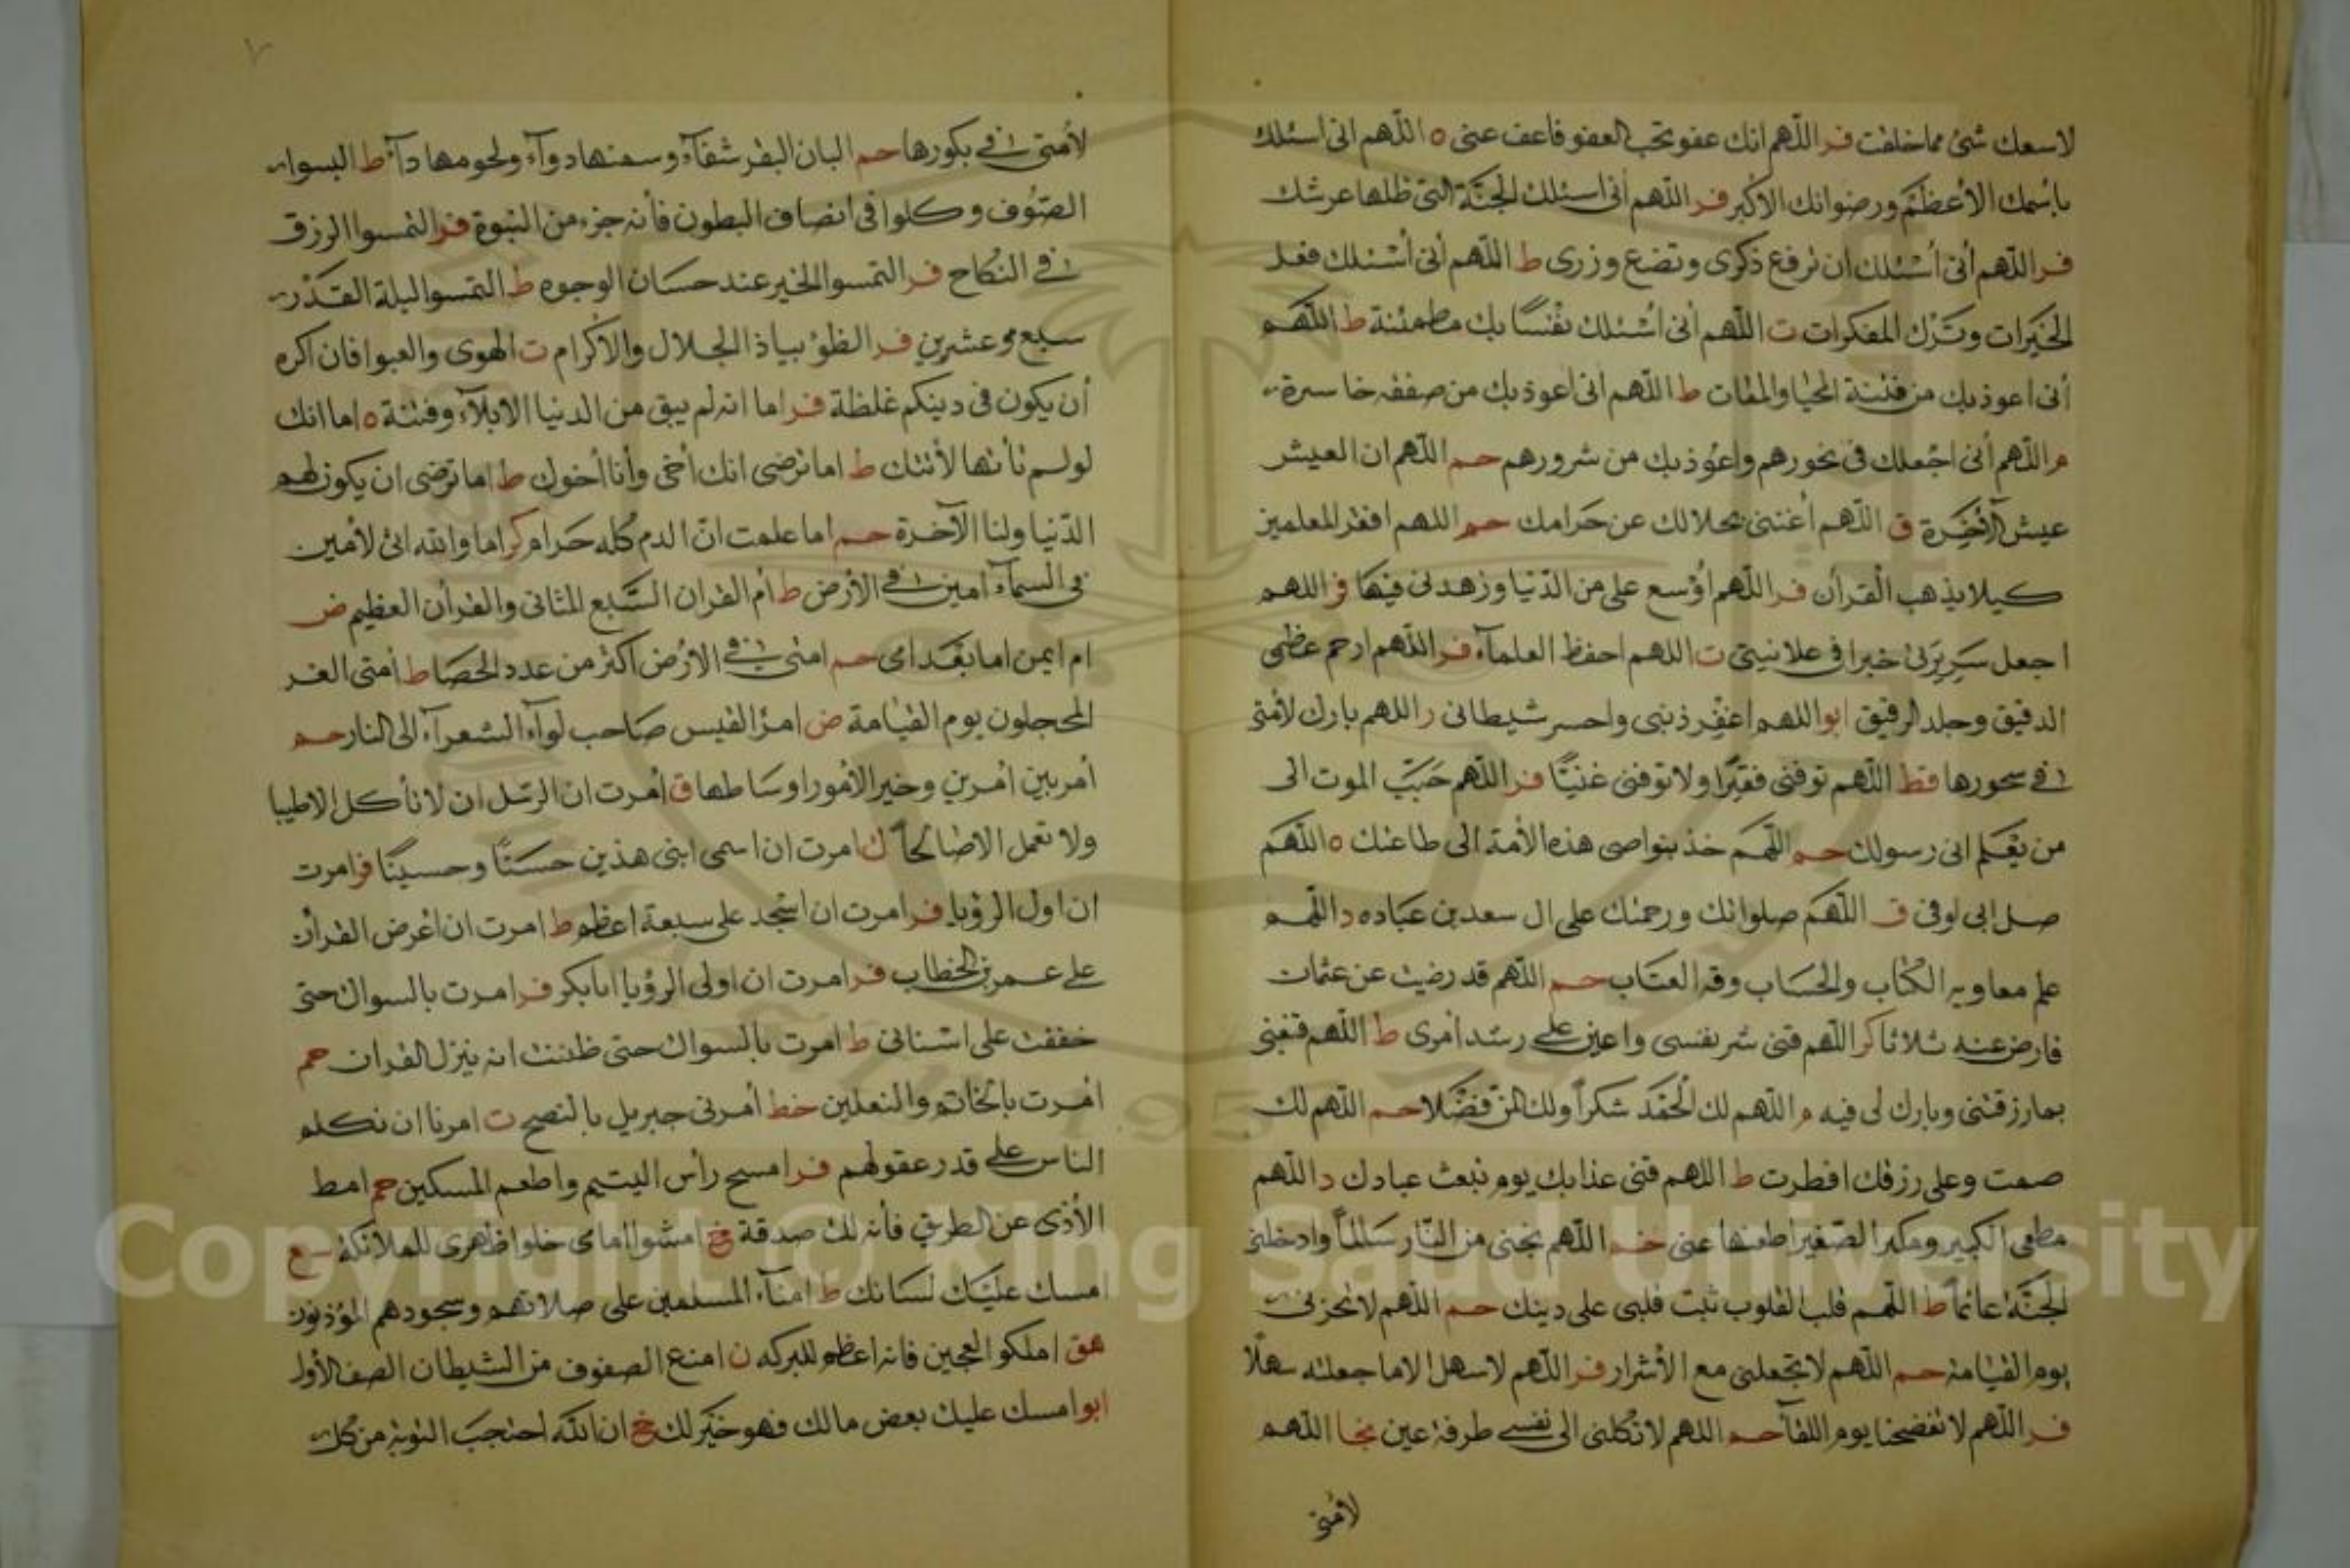 لاسعك شئ مما خلقت فر اللهم انك عفو تحب العفو فاعف عنى ه اللهم انى اسئلك
باسمك الأعظم ورضوانك الأكبر فر اللهم انى اسئلك الجنة التى ظلها عرشك
فر اللهم أنى أسئلك ان ترفع ذكرى وتضع وزرى ط اللهم أنى أسئلك فعل
الخيرات وترك المفكرات ت اللهم أنى أسئلك نفسا بك مطمئنة ط اللهم
أنى اعوذ بك من فتنة المحيا والممات ط اللهم انى اعوذ بك من صفقه خاسرة
م اللهم أنى اجعلك فى نحورهم واعوذ بك من شرورهم حم اللهم ان العيش
عيش الآخرة ق اللهم أغننى بحلالك عن حرامك حم اللهم افقر المعلمين
كيلا يذهب القرأن فر اللهم أوسع على من الدنيا وزهدنى فيها فر اللهم
اجعل سريرتى خيرا فى علانيتى ت اللهم احفظ العلمآء فر اللهم ارحم عظمى
الدقيق وجلد الرقيق ابو اللهم اغفر ذنبى واحسر شيطانى ر اللهم بارك لأمتى
فى سحورها قط اللهم توفنى فقيرا ولا توفنى غنيا فر اللهم حبب الموت الى
من يعلم انى رسولك حم اللهم خذ بنواصى هذه الأمة الى طاعتك ه اللهم
صل ابى اوفى ق اللهم صلواتك ورحمتك على ال سعد بن عباده د اللهم
علم معاويه الكتاب والحساب وقه العتاب حم اللهم قد رضيت عن عثمان
فارض عنه ثلاثا كر اللهم قنى شر نفسى واعين على رشد امرى ط اللهم قنغنى
بما رزقتنى وبارك لى فيه م اللهم لك الحمد شكرا ولك المن فضلا حم اللهم لك
صمت وعلى رزقك افطرت ط اللهم قنى عذابك يوم تبعث عبادك د اللهم
مطفى الكبير ومكبر الصغير اطفها عنى خم اللهم نجنى من النار سالما وادخلنى
الجنة عانما ط اللهم قلب القلوب ثبت قلبى على دينك حم اللهم لا تخزنى
يوم القيامة حم اللهم لا تجعلنى مع الأشرار فر اللهم لا سهل الا ما جعلته سهلا
فر اللهم لا تفضحنا يوم اللقآ حم اللهم لا تكلنى الى نفسى طرفة عين نجا اللهم
لأمتى
٧
لأمتى فى بكورها حم البان البقر شفآء وسمنها دوآء ولحومها دآء ط البسوا
الصوف وكلوا فى انصاف البطون فأنه جزء من النبوة فر التمسوا الرزق
فى النكاح فر التمسوا الخير عند حسان الوجوه ط التمسوا ليلة القدر
سبع وعشرين فر الظو بياذ الجلال والأكرام ت الهوى والعبوا فان اكره
أن يكون فى دينكم غلظة فر اما انه لم يبق من الدنيا الا بلآء وفتنة ه اما انك
لو لم تأتها لأتتك ط اما ترضى انك أخى وأنا أخوك ط اما ترضى ان يكون لهم
الدنيا ولنا الآخرة حم اما علمت ان الدم كله حرام كر اما والله انى لأمين
فى السمآء امين فى الأرض ط أم القران السبع المثانى والقرأن العظيم ض
ام ايمن اما بعد امى حم امتى فى الأرض اكثر من عدد الحصا ط أمتى الغر
المحجلون يوم القيامة ض امرؤ القيس صاحب لوآء الشعرآء الى النار حم
أمر بين أمرين وخير الأمور اوساطها ق أمرت ان الرسل ان لا تأكل الا طيبا
ولا تعمل الا صالحا ك امرت ان اسمى ابنى هذين حسنا وحسينا فر امرت
ان اول الرؤيا فر امرت ان اسجد على سبعة اعظم ط امرت ان أعرض القرأن
على عمر بن الخطاب فر امرت ان اولى الرؤيا ابا بكر فر امرت بالسواك حتى
خففت على اسنانى ط امرت بالسواك حتى ظننت انه ينزل القران حم
امرت بالخاتم والنعلين خط أمرنى جبريل بالنصح ت امرنا ان نكلم
الناس على قدر عقولهم فر امسح رأس اليتيم واطعم المسكين حم امط
الأذى عن الطريق فأنه لك صدقة خ امشوا امامى خلوا ظهرى للملائكة سع
امسك عليك لسانك ط امنآء المسلمين على صلاتهم وسجودهم المؤذنون
هق املكوا العجين فانه اعظم للبركه ن امنع الصفوف من الشيطان الصف الأول
ابو امسك عليك بعض مالك فهو خير لك خ ان الله احتجب التوبة من كل
Copyright © King Saud University